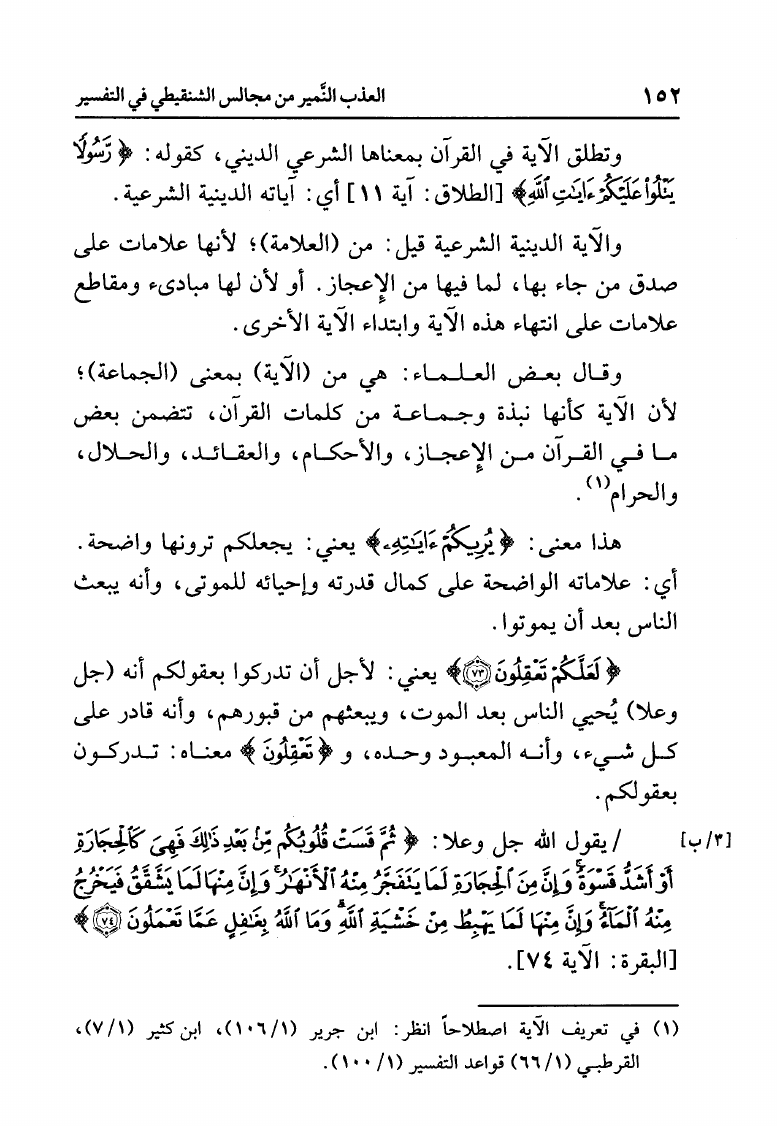 ١٥٢ العذب النَّمير من مجالس الشنقيطي في التفسير
وتطلق الآية في القرآن بمعناها الشرعي الديني، كقوله: ﴿ رَّسُولًا
يَتْلُوا۟ عَلَيْكُمْ ءَايَٰتِ ٱللَّهِ﴾ [الطلاق: آية ١١] أي: آياته الدينية الشرعية.
والآية الدينية الشرعية قيل: من (العلامة)؛ لأنها علامات على
صدق من جاء بها، لما فيها من الإعجاز. أو لأن لها مبادىء ومقاطع
علامات على انتهاء هذه الآية وابتداء الآية الأخرى.
وقال بعض العلماء: هي من (الآية) بمعنى (الجماعة)؛
لأن الآية كأنها نبذة وجماعة من كلمات القرآن، تتضمن بعض
ما في القرآن من الإعجاز، والأحكام، والعقائد، والحلال،
والحرام(١).
هذا معنى: ﴿ يُرِيكُمْ ءَايَٰتِهِۦ﴾ يعني: يجعلكم ترونها واضحة.
أي: علاماته الواضحة على كمال قدرته وإحيائه للموتى، وأنه يبعث
الناس بعد أن يموتوا.
﴿ لَعَلَّكُمْ تَعْقِلُونَ ٧٣﴾ يعني: لأجل أن تدركوا بعقولكم أنه (جل
وعلا) يُحيي الناس بعد الموت، ويبعثهم من قبورهم، وأنه قادر على
كل شيء، وأنه المعبود وحده، و ﴿ تَعْقِلُونَ ﴾ معناه: تدركون
بعقولكم.
[٣/ب] / يقول الله جل وعلا: ﴿ ثُمَّ قَسَتْ قُلُوبُكُم مِّنۢ بَعْدِ ذَٰلِكَ فَهِىَ كَٱلْحِجَارَةِ
أَوْ أَشَدُّ قَسْوَةً ۚ وَإِنَّ مِنَ ٱلْحِجَارَةِ لَمَا يَتَفَجَّرُ مِنْهُ ٱلْأَنْهَٰرُ ۚ وَإِنَّ مِنْهَا لَمَا يَشَّقَّقُ فَيَخْرُجُ
مِنْهُ ٱلْمَآءُ ۚ وَإِنَّ مِنْهَا لَمَا يَهْبِطُ مِنْ خَشْيَةِ ٱللَّهِ ۗ وَمَا ٱللَّهُ بِغَٰفِلٍ عَمَّا تَعْمَلُونَ ٧٤ ﴾
[البقرة: الآية ٧٤].
(١) في تعريف الآية اصطلاحاً انظر: ابن جرير (١٠٦/١)، ابن كثير (٧/١)،
القرطبي (٦٦/١) قواعد التفسير (١٠٠/١).